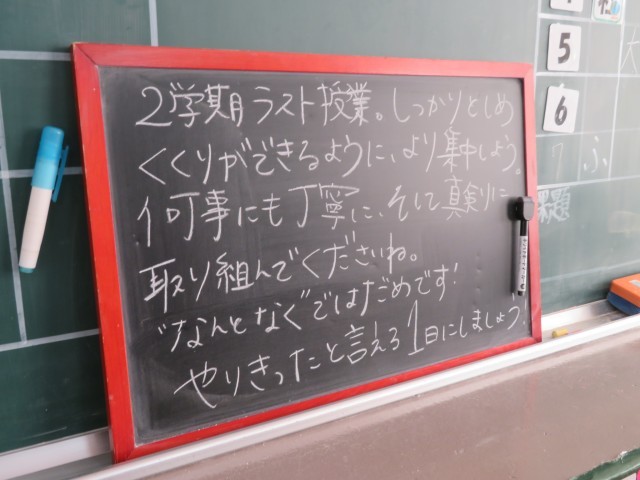 2学期ラスト授業。しっかりとしめ
くくりができるように、より集中しよう。
何事にも丁寧に、そして真剣に
取り組んでくださいね。
"なんとなく"ではだめです!
やりきったと言える1日にしましょう
5
6
7 ふ
課題